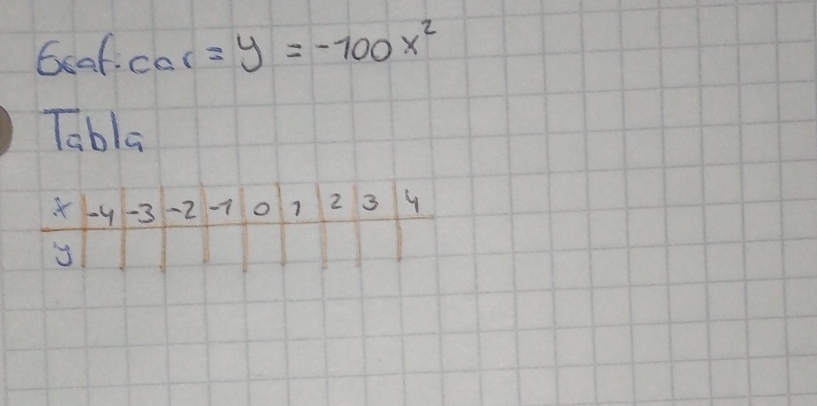 Graficar = y = -100x²
Tabla
x -4 -3 -2 -1 0 1 2 3 4
y